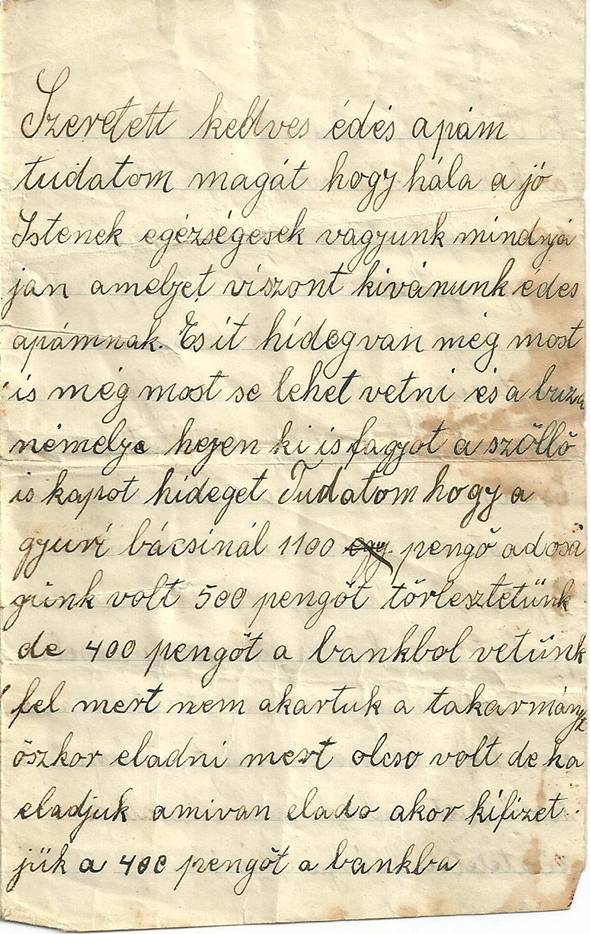 Szeretett kedves édés apám
tudatom magát hogy hála a jó
Istenek egézségesek vagyunk mindnyá
jan amelyet viszont kivánunk édes
apámnak. Es it hideg van még most
is még most se lehet vetni és a buza
némelye hejen ki is fagyot a szöllö
is kapot hideget Tudatom hogy a
gyuri bácsinál 1100 egy pengő adosá
gunk volt 500 pengőt törlesztetünk
de 400 pengőt a bankbol vetünk
fel mert nem akartuk a takarmányt
öszkor eladni mert olcso volt de ha
eladjuk amivan elado akor kifizet
jük a 400 pengőt a bankba